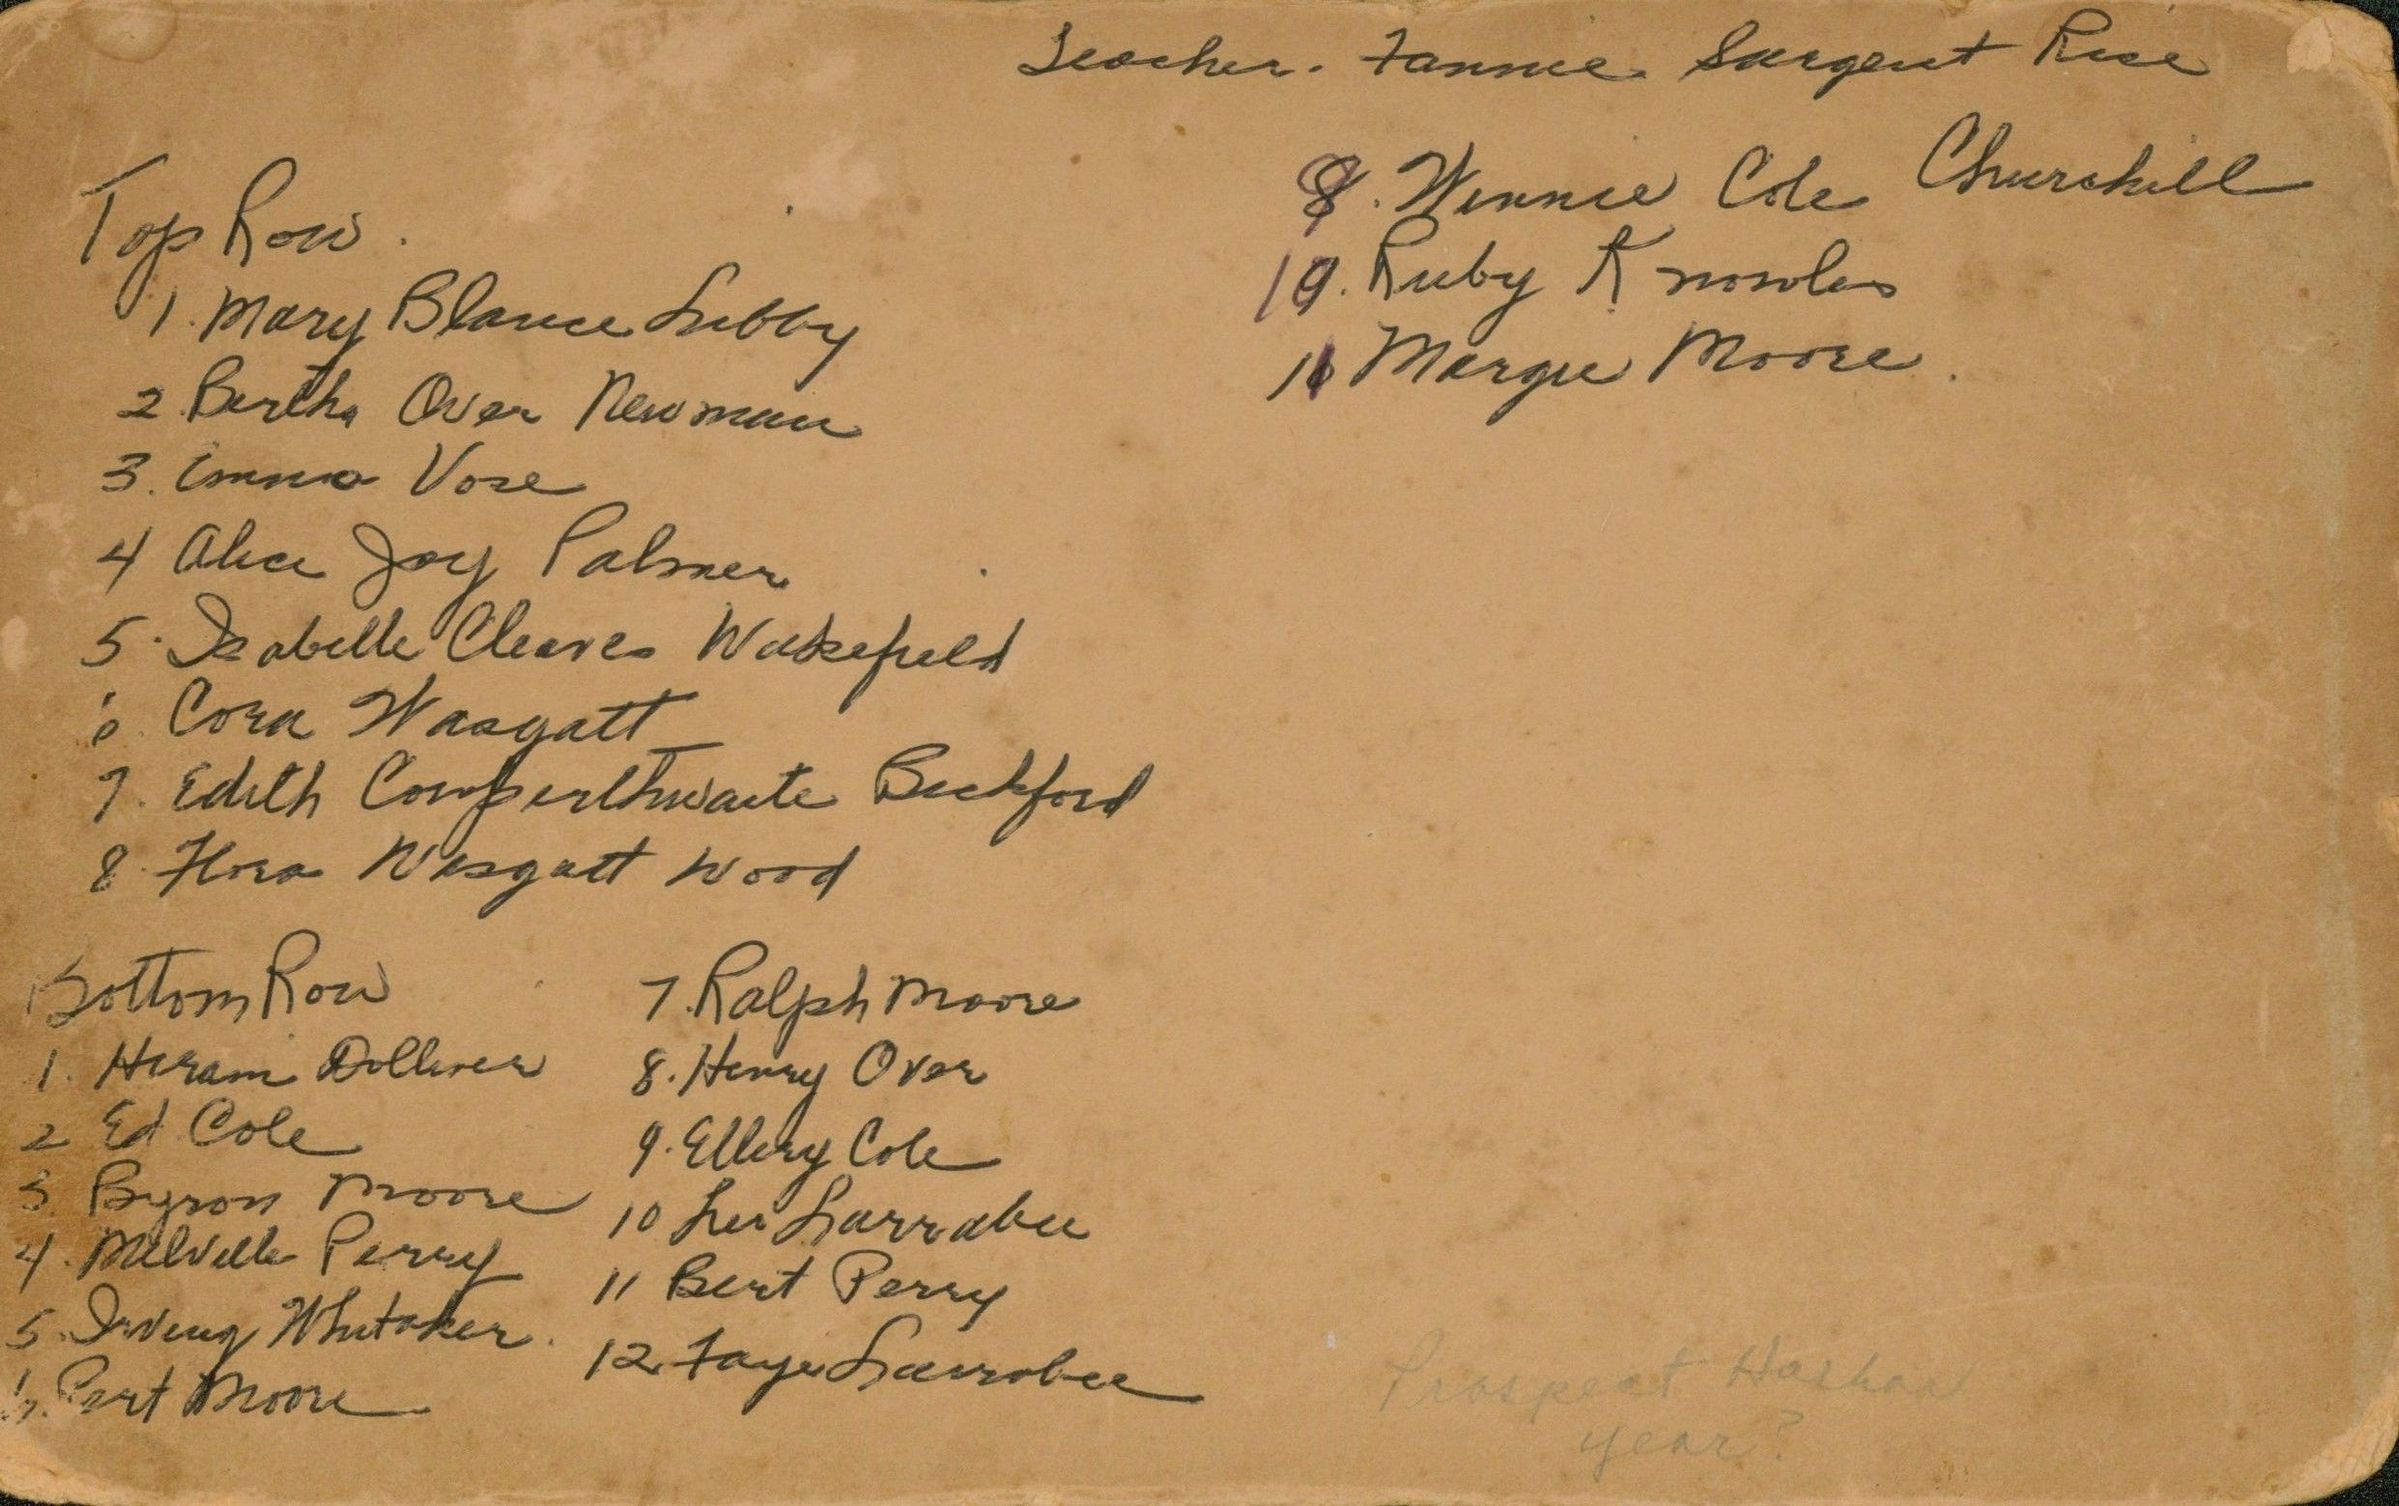 Teacher. Fannie Sargent Rice
Top Row.
1. Mary Blance Libby
2 Bertha Over Newman
3. Emma Vose
4 Alice Joy Palmer
5. Isabelle Cleaves Wakefield
6. Cora Wasgatt
7. Edith Cowperthwaite Bickford
8. Flora Wasgatt Wood
9. Winnie Cole Churchill
10. Ruby Knowles
11 Margie Moore.
Bottom Row
1. Hiram Dolliver
2 Ed Cole
3. Byron Moore
4. Melville Perry
5. Irving Whitaker.
6. Pert Moore
7. Ralph Moore
8. Henry Over
9. Ellery Cole
10 Lee Larrabee
11 Bert Perry
12. Faye Larrabee
Prospect Harbor
year?